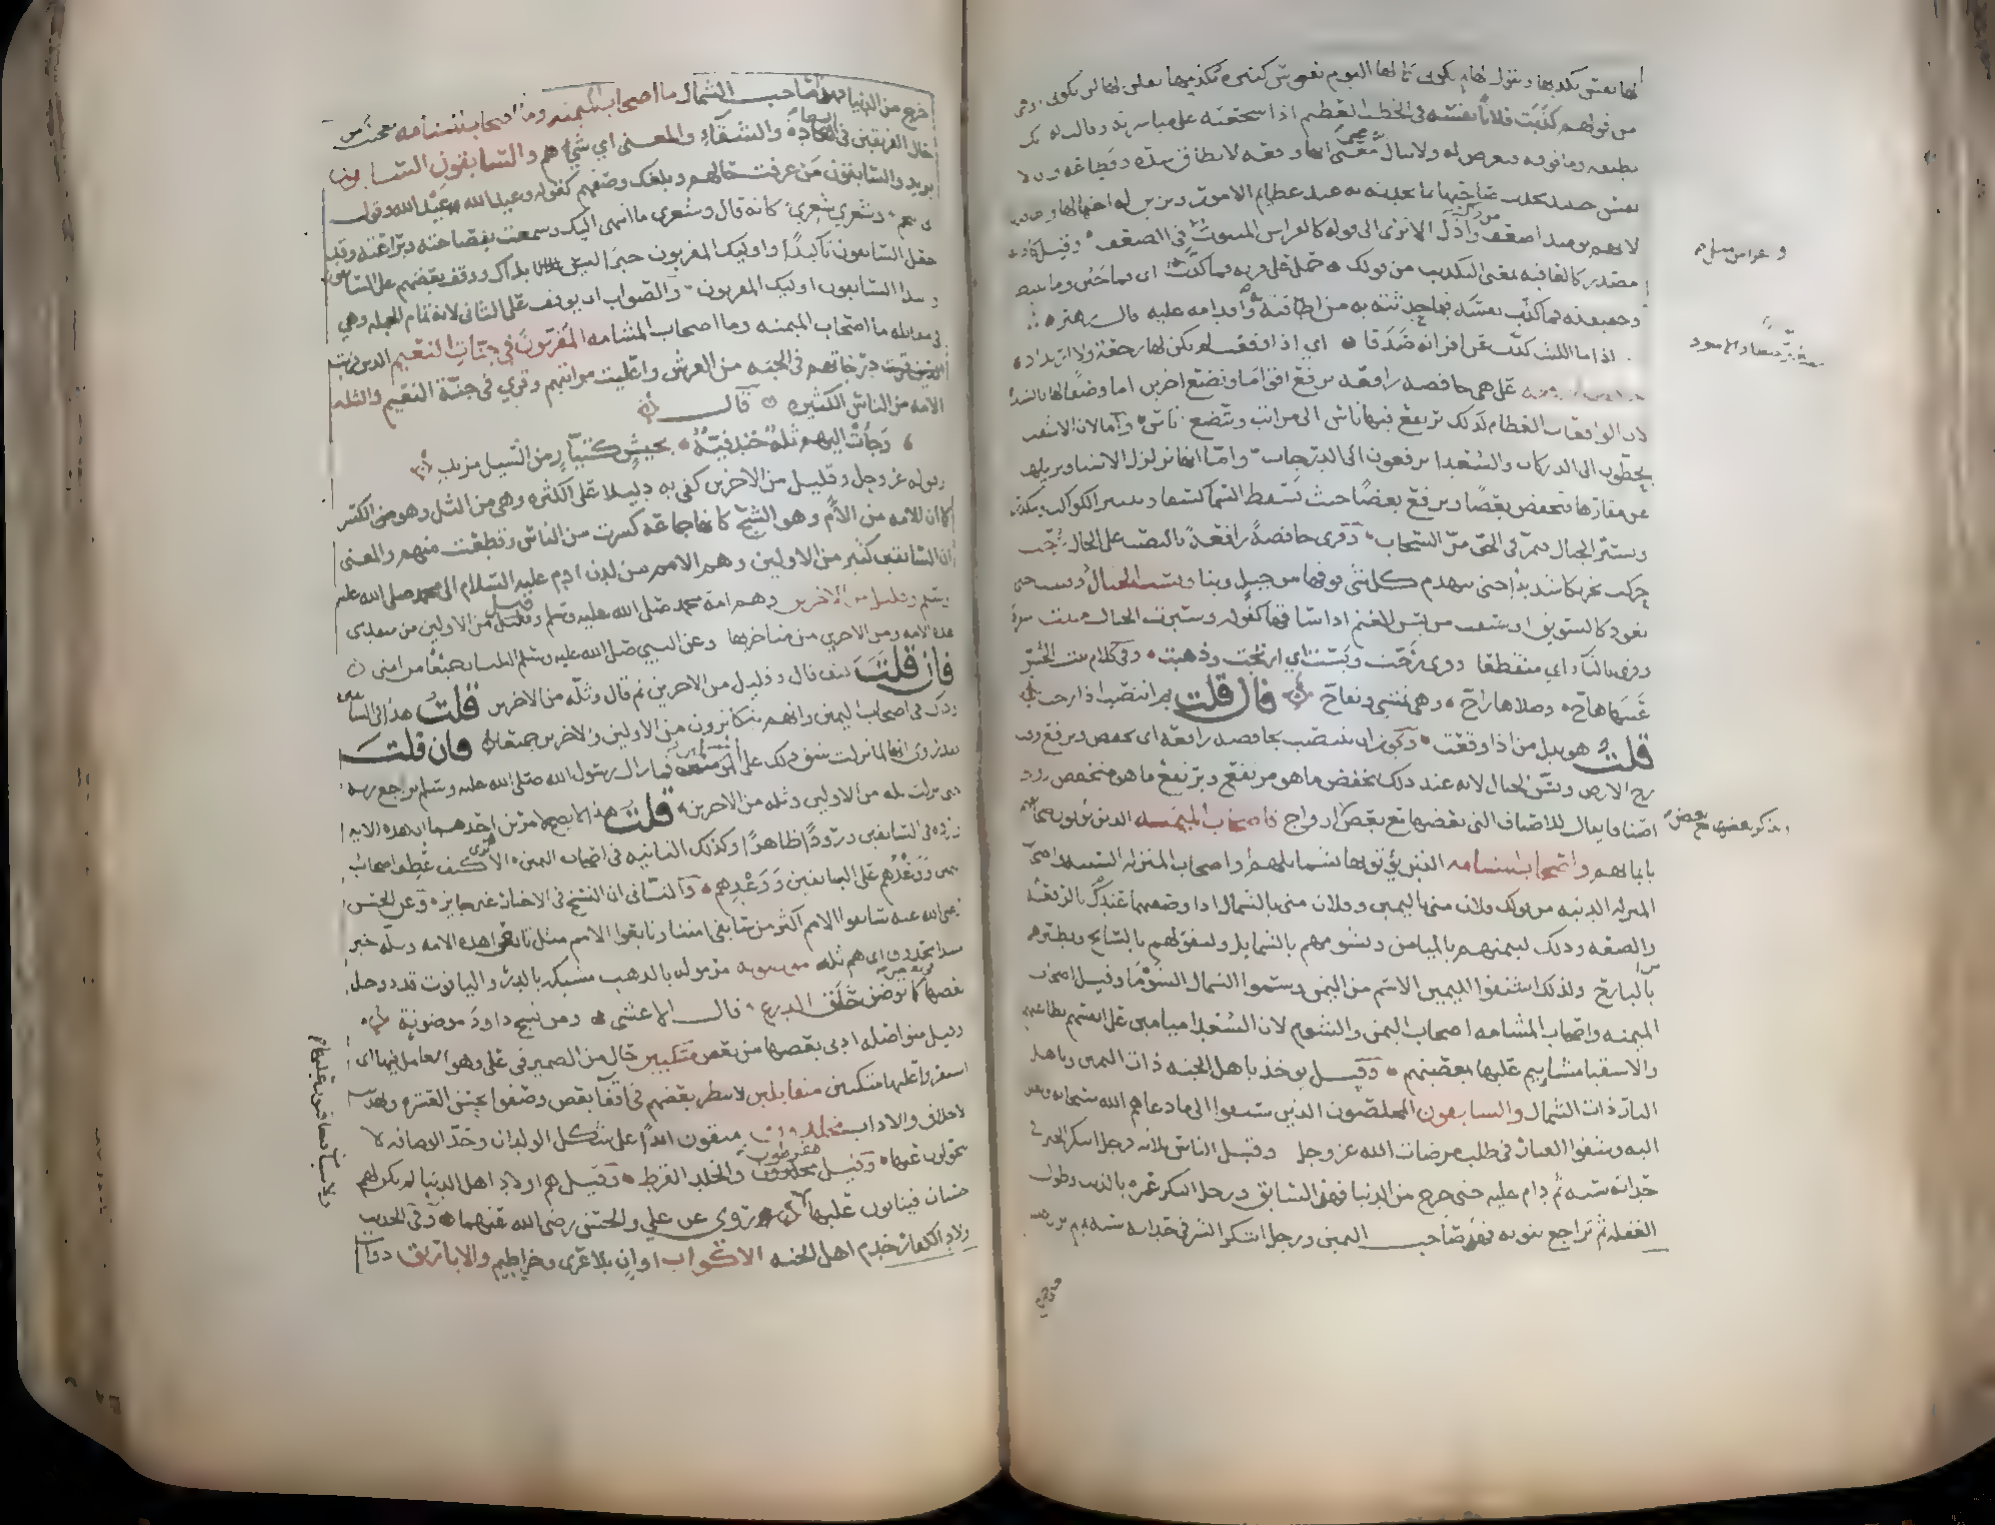 لها نفس تكذبها وتقول لها لم تكوني كما لها اليوم نفوس كثيرة تكذبها يقلن لها لن تكوني او هي
من قولهم كذبت فلانا نفسه في الخطب العظيم اذا شجعته على مباشرته وقالت له انك
تطيقه وما فوقه فتعرض له ولا تبال به على معنى انها وقعة لا تطاق شدة وفظاعة وان لا
نفس حينئذ تحدث صاحبها بما تحدثه به عند عظائم الامور وتزين له احتمالها
لانهم يومئذ اضعف من ذلك واذل الا ترى الى قوله كالفراش المبثوث والفراش مثل في الضعف وقيل كاذبة
مصدر كالعاقبة بمعنى التكذيب من قولك حمل على قرنه فما كذب اي فما جبن وما تثبط
وحقيقته فما كذب نفسه فيما حدثته به من اطاقته له واقدامه عليه قال زهير
اذا ما الليث كذب عن اقرانه صدقا اي اذا وقعت لم تكن لها رجعة ولا ارتداد
خافضة رافعة على هي خافضة رافعة ترفع اقواما وتضع اخرين اما وصفا لها بالشدة
لان الواقعات العظام كذلك يرتفع فيها ناس الى مراتب ويتضع ناس واما لان الاشقياء
يحطون الى الدركات والسعداء يرفعون الى الدرجات واما انها تزلزل الاشياء وتزيلها
عن مقارها فتخفض بعضا وترفع بعضا حيث تسقط السماء كسفا وتنتثر الكواكب وتنكدر
وتسير الجبال فتمر في الجو مر السحاب وقرئ خافضة رافعة بالنصب على الحال رجت
حركت تحريكا شديدا حتى ينهدم كل شئ فوقها من جبل وبناء وبست الجبال وفتت حتى
تعود كالسويق او سيقت من بس الغنم اذا ساقها كقوله وسيرت الجبال منبثا متفرقا
وقرئ بالتاء اي منقطعا وقرئ رجت وبست اي ارتجت وذهبت وفي كلام بنت الخس
عينها هاج وصلاها راج وهي تمشي وتفاج فان قلت بم انتصب اذا رجت
قلت هو بدل من اذا وقعت ويجوز ان ينتصب بخافضة رافعة اي تخفض وترفع وقت
رج الارض وبس الجبال لانه عند ذلك ينخفض ما هو مرتفع ويرتفع ما هو منخفض ازواجا
اصنافا يقال للاصناف التي بعضها مع بعض ازواج فاصحاب الميمنة الذين يؤتون صحائفهم
بايمانهم واصحاب المشئمة الذين يؤتونها بشمائلهم او اصحاب المنزلة السنية واصحاب
المنزلة الدنية من قولك فلان مني باليمين وفلان مني بالشمال اذا وصفتهما عندك بالرفعة
والضعة وذلك لتيمنهم بالميامن وتشؤمهم بالشمائل ولتفؤلهم بالسانح وتطيرهم
من البارح ولذلك اشتقوا لليمين الاسم من اليمن وسموا الشمال الشؤمى وقيل اصحاب
الميمنة واصحاب المشامة اصحاب اليمن والشؤم لان السعداء ميامين على انفسهم بطاعتهم
والاشقياء مشائيم عليها بمعصيتهم وقيل يؤخذ باهل الجنة ذات اليمين وباهل
النار ذات الشمال والسابقون المخلصون الذين سبقوا الى ما دعاهم الله سبحانه وتعالى
اليه وشقوا الغبار في طلب مرضات الله عز وجل وقيل الناس ثلاثة فرجل ابتكر الخير في
حداثة سنه ثم دام عليه حتى خرج من الدنيا فهذا السابق ورجل ابتكر عمره بالذنب وطول
الغفلة ثم تراجع بتوبة فهذا صاحب اليمين ورجل ابتكر الشر في حداثة سنه ثم لم يزل عليه
حتى
والفراش مثل
واذكر بعضها مع بعض
خرج من الدنيا فهذا صاحب الشمال ما اصحاب الميمنة وما اصحاب المشئمة تعجيب من
حال الفريقين في السعادة والشقاء والمعنى اي شئ هم والسابقون السابقون
يريد والسابقون من عرفت حالهم وبلغك وصفهم كقوله وعبد الله عبد الله وقول
ابي النجم وشعري شعري كانه قال وشعري ما انتهى اليك وسمعت بفصاحته وبراعته وقد
جعل السابقون تاكيدا واولئك المقربون خبرا وليس بذاك ووقف بعضهم على والسابقون
وابتدا السابقون اولئك المقربون والصواب ان يوقف على الثاني لانه تمام الجملة وهي
في مقابلة ما اصحاب الميمنة وما اصحاب المشامة المقربون في جنات النعيم الذين قربت
درجاتهم في الجنة من العرش واعليت مراتبهم وقرئ في جنة النعيم والثلة
الامة من الناس الكثيرة قال
وجاءت اليهم ثلة خندفية بجيش كتيار من السيل مزبد
وقوله عز وجل وقليل من الاخرين كفى به دليلا على الكثرة وهي من الثل وهو الكسر
كما ان الامة من الام وهو الشج كانها جماعة كسرت من الناس وقطعت منهم والمعنى
ان السابقين كثير من الاولين وهم الامم من لدن ادم عليه السلام الى محمد صلى الله عليه
وسلم وقليل من الاخرين وهم امة محمد صلى الله عليه وسلم وقيل من الاولين من متقدمي
هذه الامة ومن الاخرين من متاخريها وعن النبي صلى الله عليه وسلم الثلتان جميعا من امتي
فان قلت كيف قال وقليل من الاخرين ثم قال وثلة من الاخرين قلت هذا في السابقين
وذلك في اصحاب اليمين وانهم يتكاثرون من الاولين والاخرين جميعا فان قلت
فقد روي انها لما نزلت شق ذلك على المسلمين فما زال رسول الله صلى الله عليه وسلم يراجع ربه
حتى نزلت ثلة من الاولين وثلة من الاخرين قلت هذا لا يصح لامرين احدهما ان هذه الاية
واردة في السابقين ورودا ظاهرا وكذلك الثانية في اصحاب اليمين الا ترى كيف عطف اصحاب
اليمين ووعدهم على السابقين ووعدهم والثاني ان النسخ في الاخبار غير جائز وعن الحسن
رضي الله عنه سابقوا الامم اكثر من سابقي امتنا وتابعوا الامم مثل تابعي هذه الامة وثلة خبر
مبتدا محذوف اي هم ثلة موضونة مرمولة بالذهب مشبكة بالدر والياقوت قد دوخل
بعضها في بعض كما توضن حلق الدرع قال الاعشى ومن نسج داود موضونة
وقيل متواصلة ادني بعضها من بعض متكئين حال من الضمير في على وهو العامل فيها اي
استقروا عليها متكئين متقابلين لا ينظر بعضهم في اقفاء بعض وصفوا بحسن العشرة وتهذيب
الاخلاق والاداب مخلدون مبقون ابدا على شكل الولدان وحد الوصافة لا
يتحولون عنها وقيل مقرطون والخلد القرط وقيل هم اولاد اهل الدنيا لم تكن لهم
حسنات فيثابون عليها روي عن علي والحسن رضي الله عنهما وفي الحديث
اولاد الكفار خدام اهل الجنة الاكواب اوان بلا عرى وخراطيم والاباريق ذوات
ولا سيئات فيعاقبون عليها